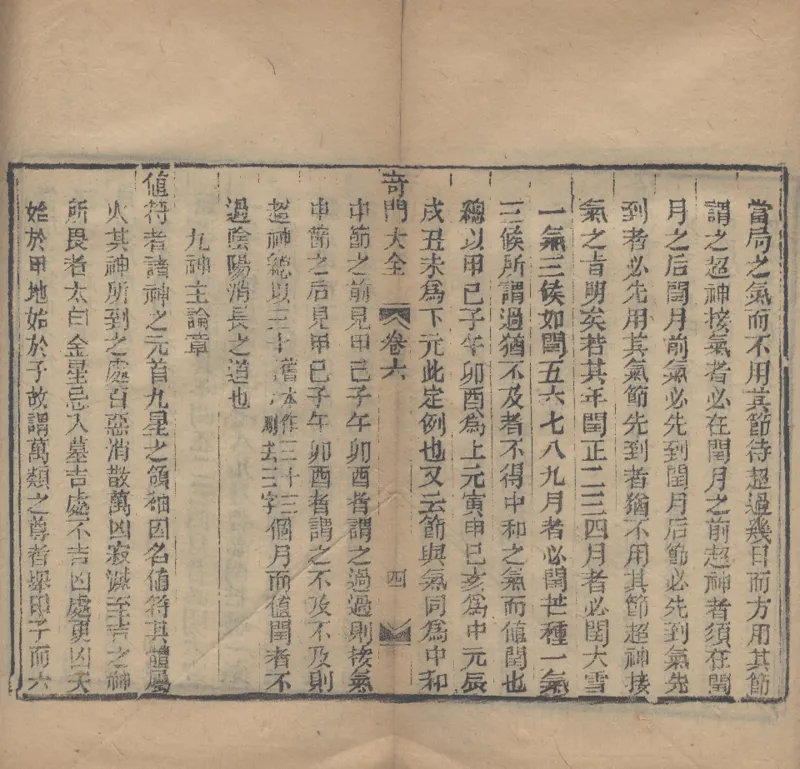 當局之氣而不用其節待超過幾日而方用其節
謂之超神接氣者必在閏月之前超神者須在閏
月之后閏月前氣必先到閏月后節必先到氣先
到者必先用其氣節先到者猶不用其節超神接
氣之肯明矣若其年閏正二三四月者必閏大雪
一氣三候如閏五六七八九月者必閏芒種一氣
三候所謂過猶不及者不得中和之氣而值閏也
總以甲己子午卯酉為上元寅申巳亥為中元辰
戌丑未為下元此定例也又云節與氣同為中和
奇門大全 卷六 四
中節之前見甲己子午卯酉者謂之過過則接氣
中節之后見甲己子午卯酉者謂之不及不及則
超神總以三十舊本作三十三刪去三字個月而值閏者不
過陰陽消長之道也
九神主論章
値符者諸神之元首九星之領袖因名値符其體屬
火其神所到之處百惡消散萬凶寂滅至吉之神
所畏者太白金星忌入墓吉處不吉凶處更凶天
始於甲地始於子故謂萬類之尊者舉甲子而六